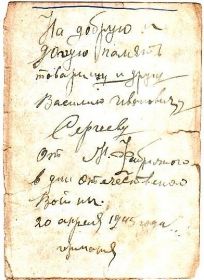 На добрую и
долгую память
товарищу и другу
Василию Ивановичу
Сергееву
От
в дни отечественной
Войны.
20 апреля 1945 года
германия